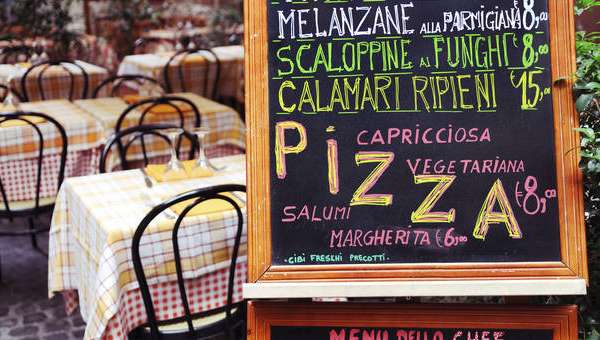 MELANZANE ALLA PARMIGIANA €8,00
SCALOPPINE AI FUNGHI €8,00
CALAMARI RIPIENI €15,00
CAPRICCIOSA
PIZZA
VEGETARIANA
€8,00
SALUMI
MARGHERITA €6,00
- CIBI FRESCHI PRECOTTI.
MENU DELLO CHEF